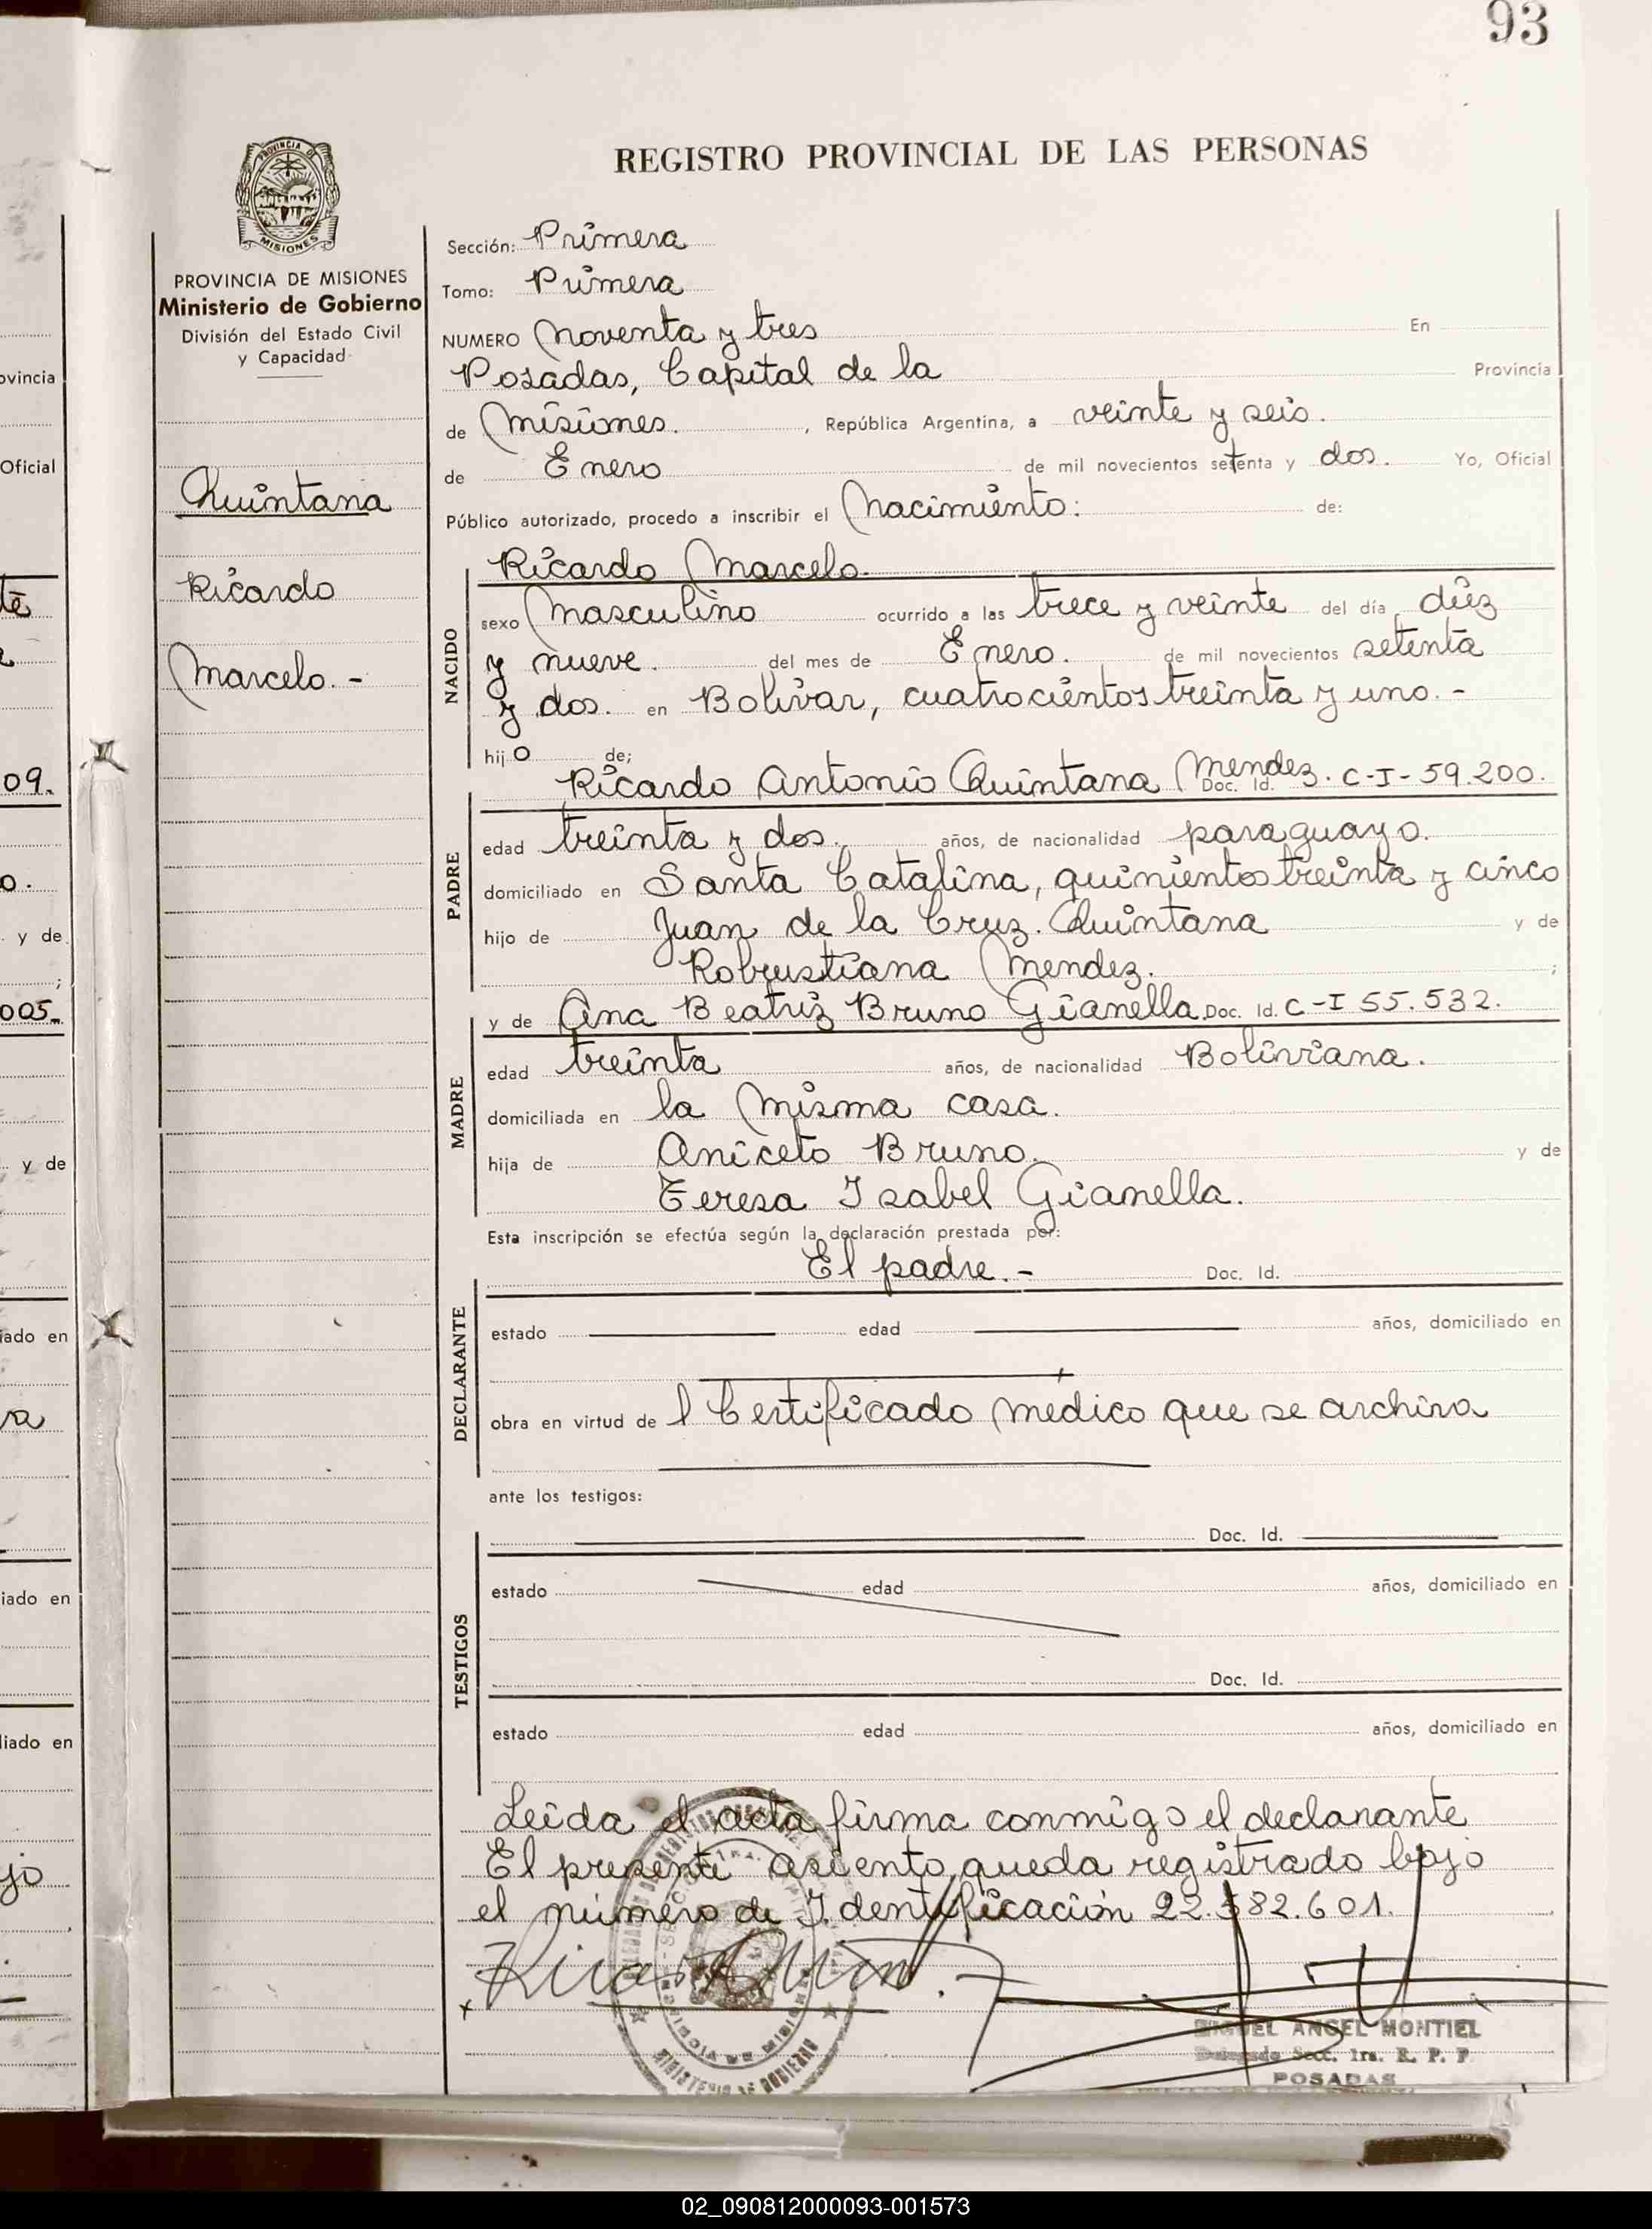 93
REGISTRO PROVINCIAL DE LAS PERSONAS
PROVINCIA DE
MISIONES
PROVINCIA DE MISIONES
Ministerio de Gobierno
División del Estado Civil
y Capacidad
Quintana
Ricardo
Marcelo.-
Sección: Primera
Tomo: Primera
NUMERO Noventa y tres En
Posadas, Capital de la Provincia
de Misiones. , República Argentina, a veinte y seis.
de Enero de mil novecientos setenta y dos. Yo, Oficial
Público autorizado, procedo a inscribir el Nacimiento: de:
Ricardo Marcelo.
NACIDO
sexo Masculino ocurrido a las trece y veinte del día diez
y nueve. del mes de Enero. de mil novecientos setenta
y dos. en Bolívar, cuatrocientos treinta y uno.-
hijo de;
Ricardo Antonio Quintana Mendez. Doc. Id. C-I-59.200.
PADRE
edad treinta y dos. años, de nacionalidad paraguayo.
domiciliado en Santa Catalina, quinientos treinta y cinco
hijo de Juan de la Cruz. Quintana y de
Robustiana Mendez. ;
y de Ana Beatriz Bruno Gianella Doc. Id. C-I 55.532.
MADRE
edad treinta años, de nacionalidad Boliviana.
domiciliada en la misma casa.
hija de Aniceto Bruno. y de
Teresa Isabel Gianella.
Esta inscripción se efectúa según la declaración prestada por:
El padre.- Doc. Id.
DECLARANTE
estado edad años, domiciliado en
obra en virtud de l Certificado médico que se archiva
ante los testigos:
Doc. Id.
TESTIGOS
estado edad años, domiciliado en
Doc. Id.
estado edad años, domiciliado en
Leida el acta firma conmigo el declarante
El presente asiento queda registrado bajo
el número de Identificación 22.382.601.
MIGUEL ANGEL MONTIEL
Delegado Secc. 1ra. R. P. P.
POSADAS
MINISTERIO DE GOBIERNO
ovincia
Oficial
te
09.
o.
y de
;
005-
y de
iado en
va
iado en
liado en
jo
02_090812000093-001573